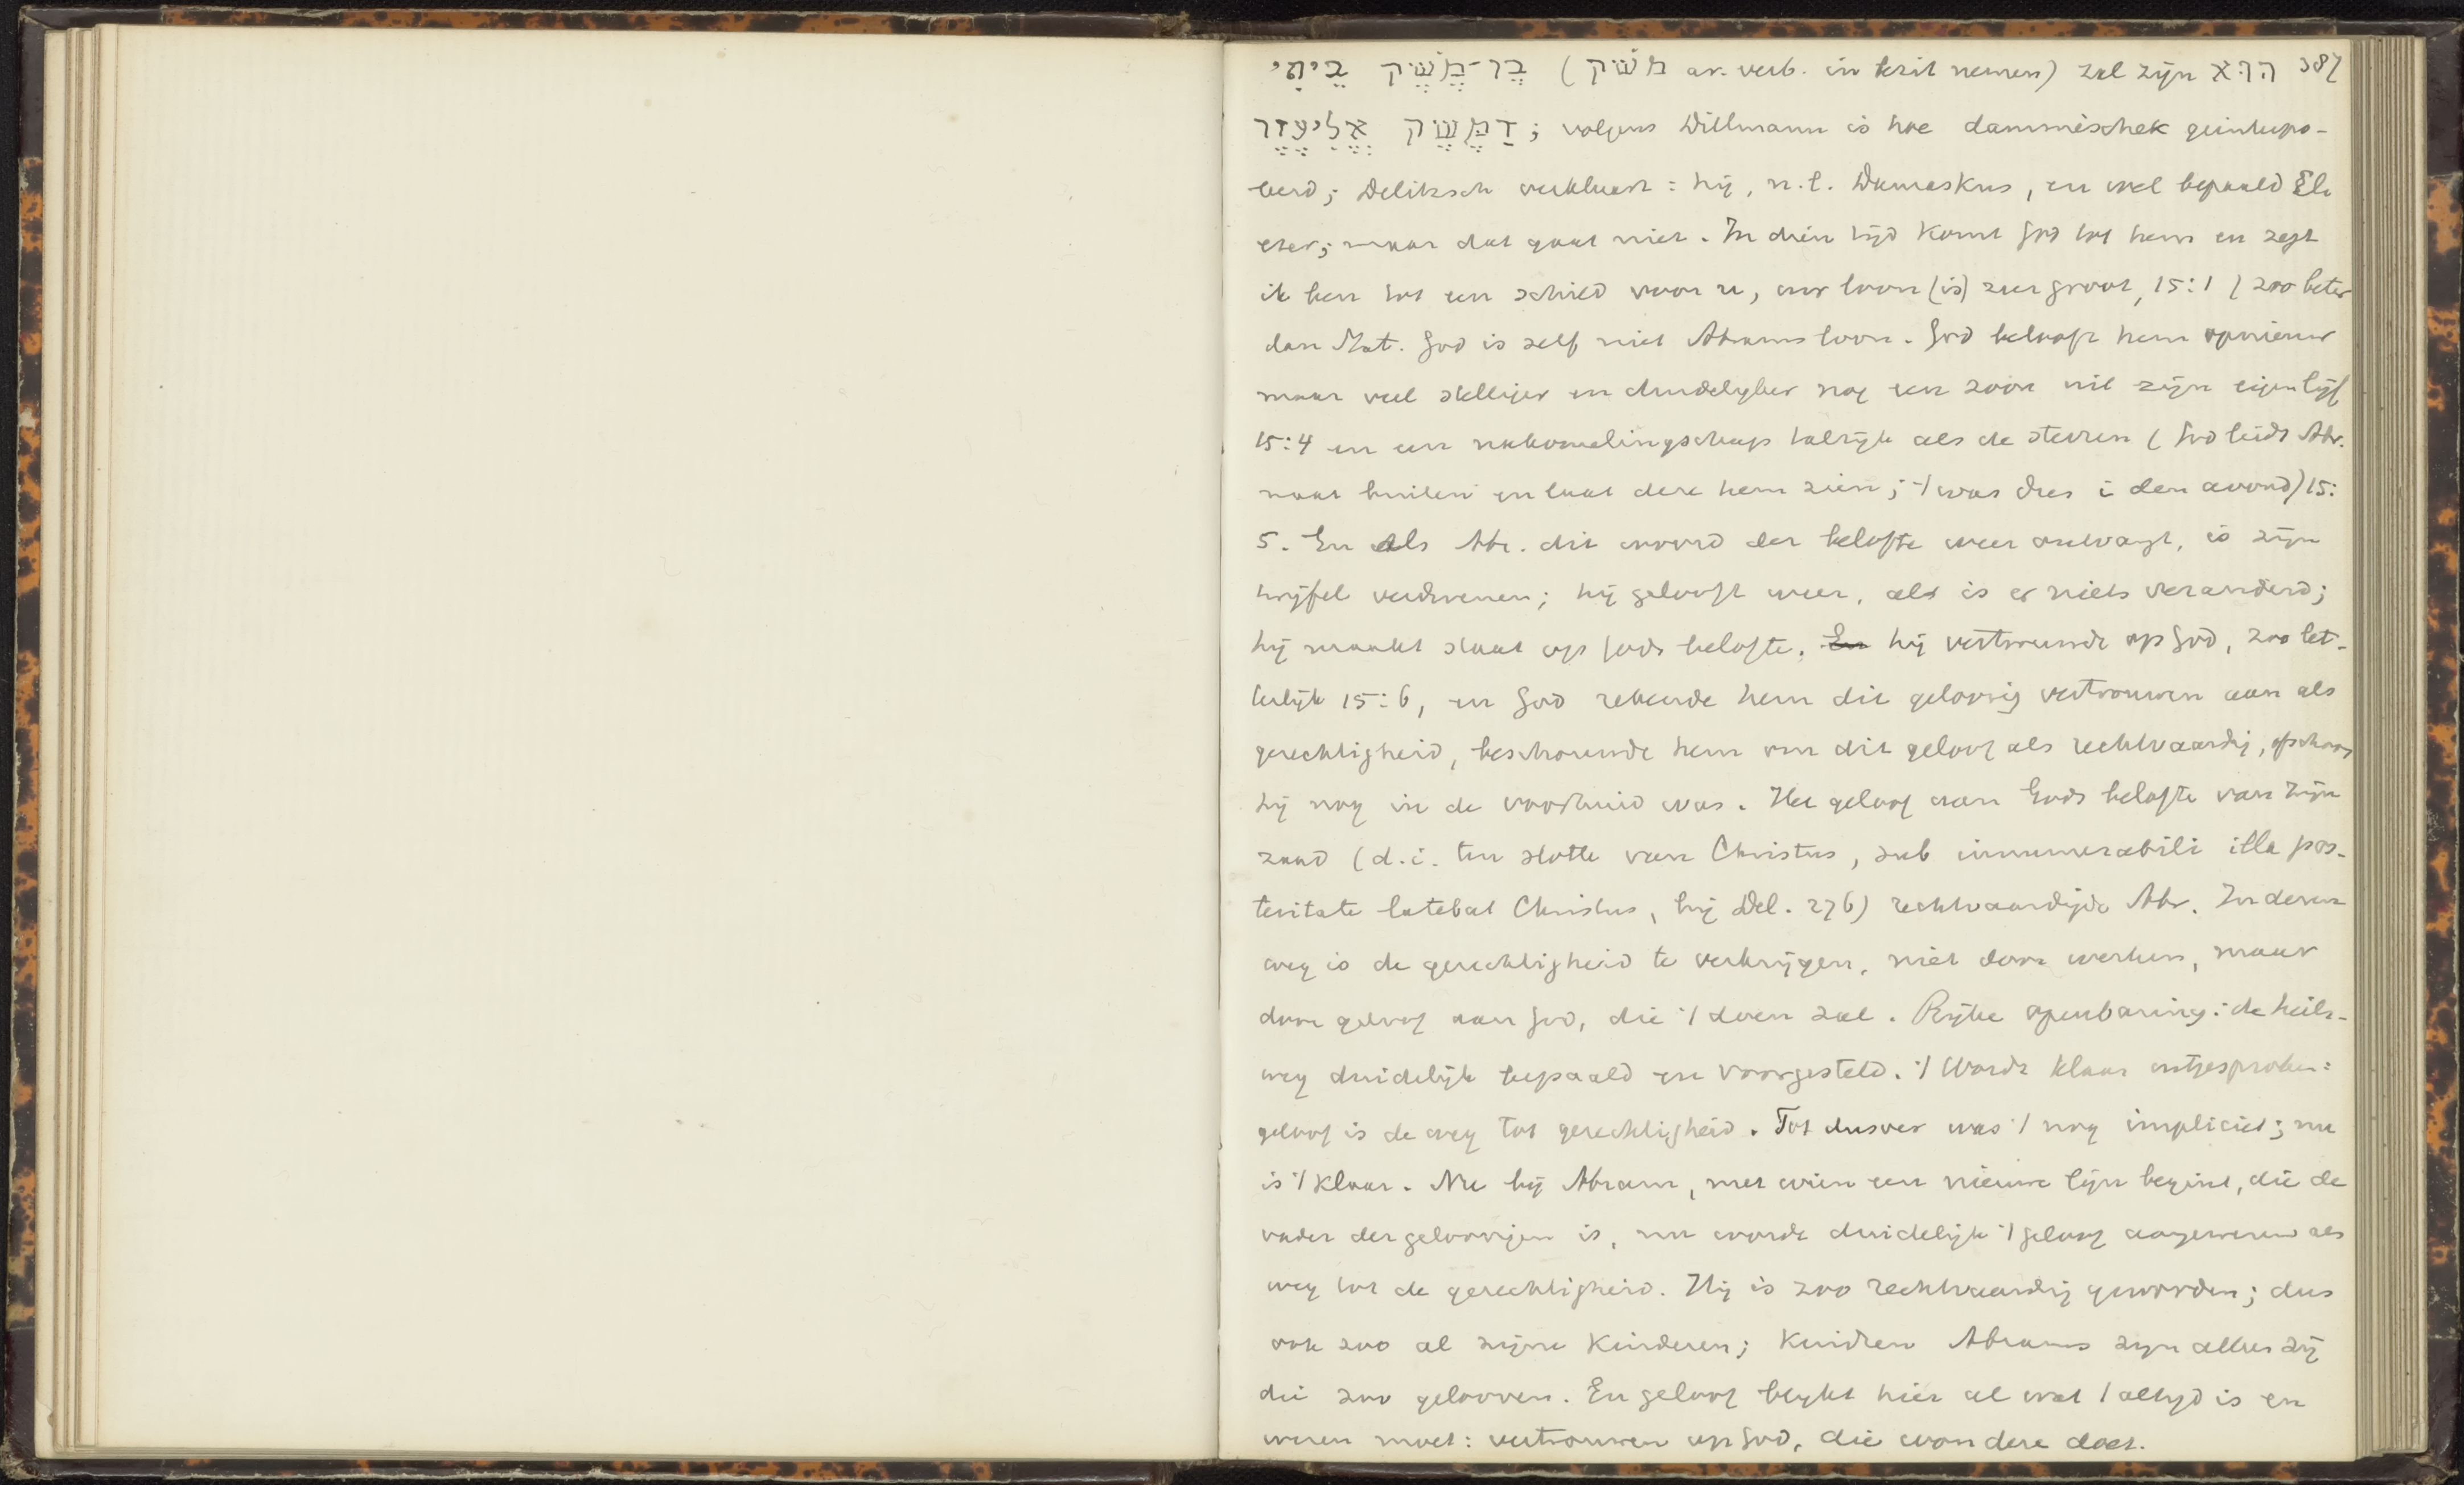 בֶּן־מֶשֶׁק בֵּיתִי (משׁק ar. verb. in bezit nemen) zal zijn הוּא 387
דַּמֶּשֶׂק אֱלִיעֶזֶר; volgens Dillmann is hoe dammèschek geinterpo-
leerd; Delitzsch verklaart: hij, n.l. Damaskus, en wel bepaald Eli
ezer; maar dat gaat niet. In dien tijd komt God tot hem en zegt
ik ben tot een schild voor u, uw loon (is) zeer groot, 15:1 / zoo beter
dan Stat. God is zelf niet Abrams loon. God belooft hem opnieuw
maar veel stelliger en duidelijker nog een zoon uit zijn eigen lijf
15:4 en een nakomelingschap talrijk als de sterren (God leidt Abr.
naar buiten en laat deze hem zien; 't was dus i den avond) 15:
5. En als Abr. dit woord der belofte weer ontvangt, is zijn
twijfel verdwenen; hij gelooft weer, als is er niets veranderd;
hij maakt staat op Gods belofte. En hij vertrouwde op God, zoo let-
terlijk 15:6, en God rekende hem dit geloovig vertrouwen aan als
gerechtigheid, beschouwde hem om dit geloof als rechtvaardig, ofschoon
hij nog in de voorhuid was. Het geloof aan Gods belofte van zijn
zaad (d.i. ten slotte van Christus, sub innumerabili illa pos-
teritate latebat Christus, bij Del. 276) rechtvaardigde Abr. In dezen
weg is de gerechtigheid te verkrijgen, niet door werken, maar
door geloof aan God, die 't doen zal. Rijke openbaring: de heils-
weg duidelijk bepaald en voorgesteld. 't Wordt klaar uitgesproken:
geloof is de weg tot gerechtigheid. Tot dusver was 't nog impliciet; nu
is 't klaar. Nu bij Abram, met wien een nieuwe lijn begint, die de
vader der geloovigen is, nu wordt duidelijk 't geloof aangewezen als
weg tot de gerechtigheid. Hij is zoo rechtvaardig geworden; dus
ook zoo al zijne kinderen; kindren Abrams zijn alleen zij
die zoo gelooven. En geloof blijkt hier al wat 't altijd is en
wezen moet: vertrouwen op God, die wondere doet.